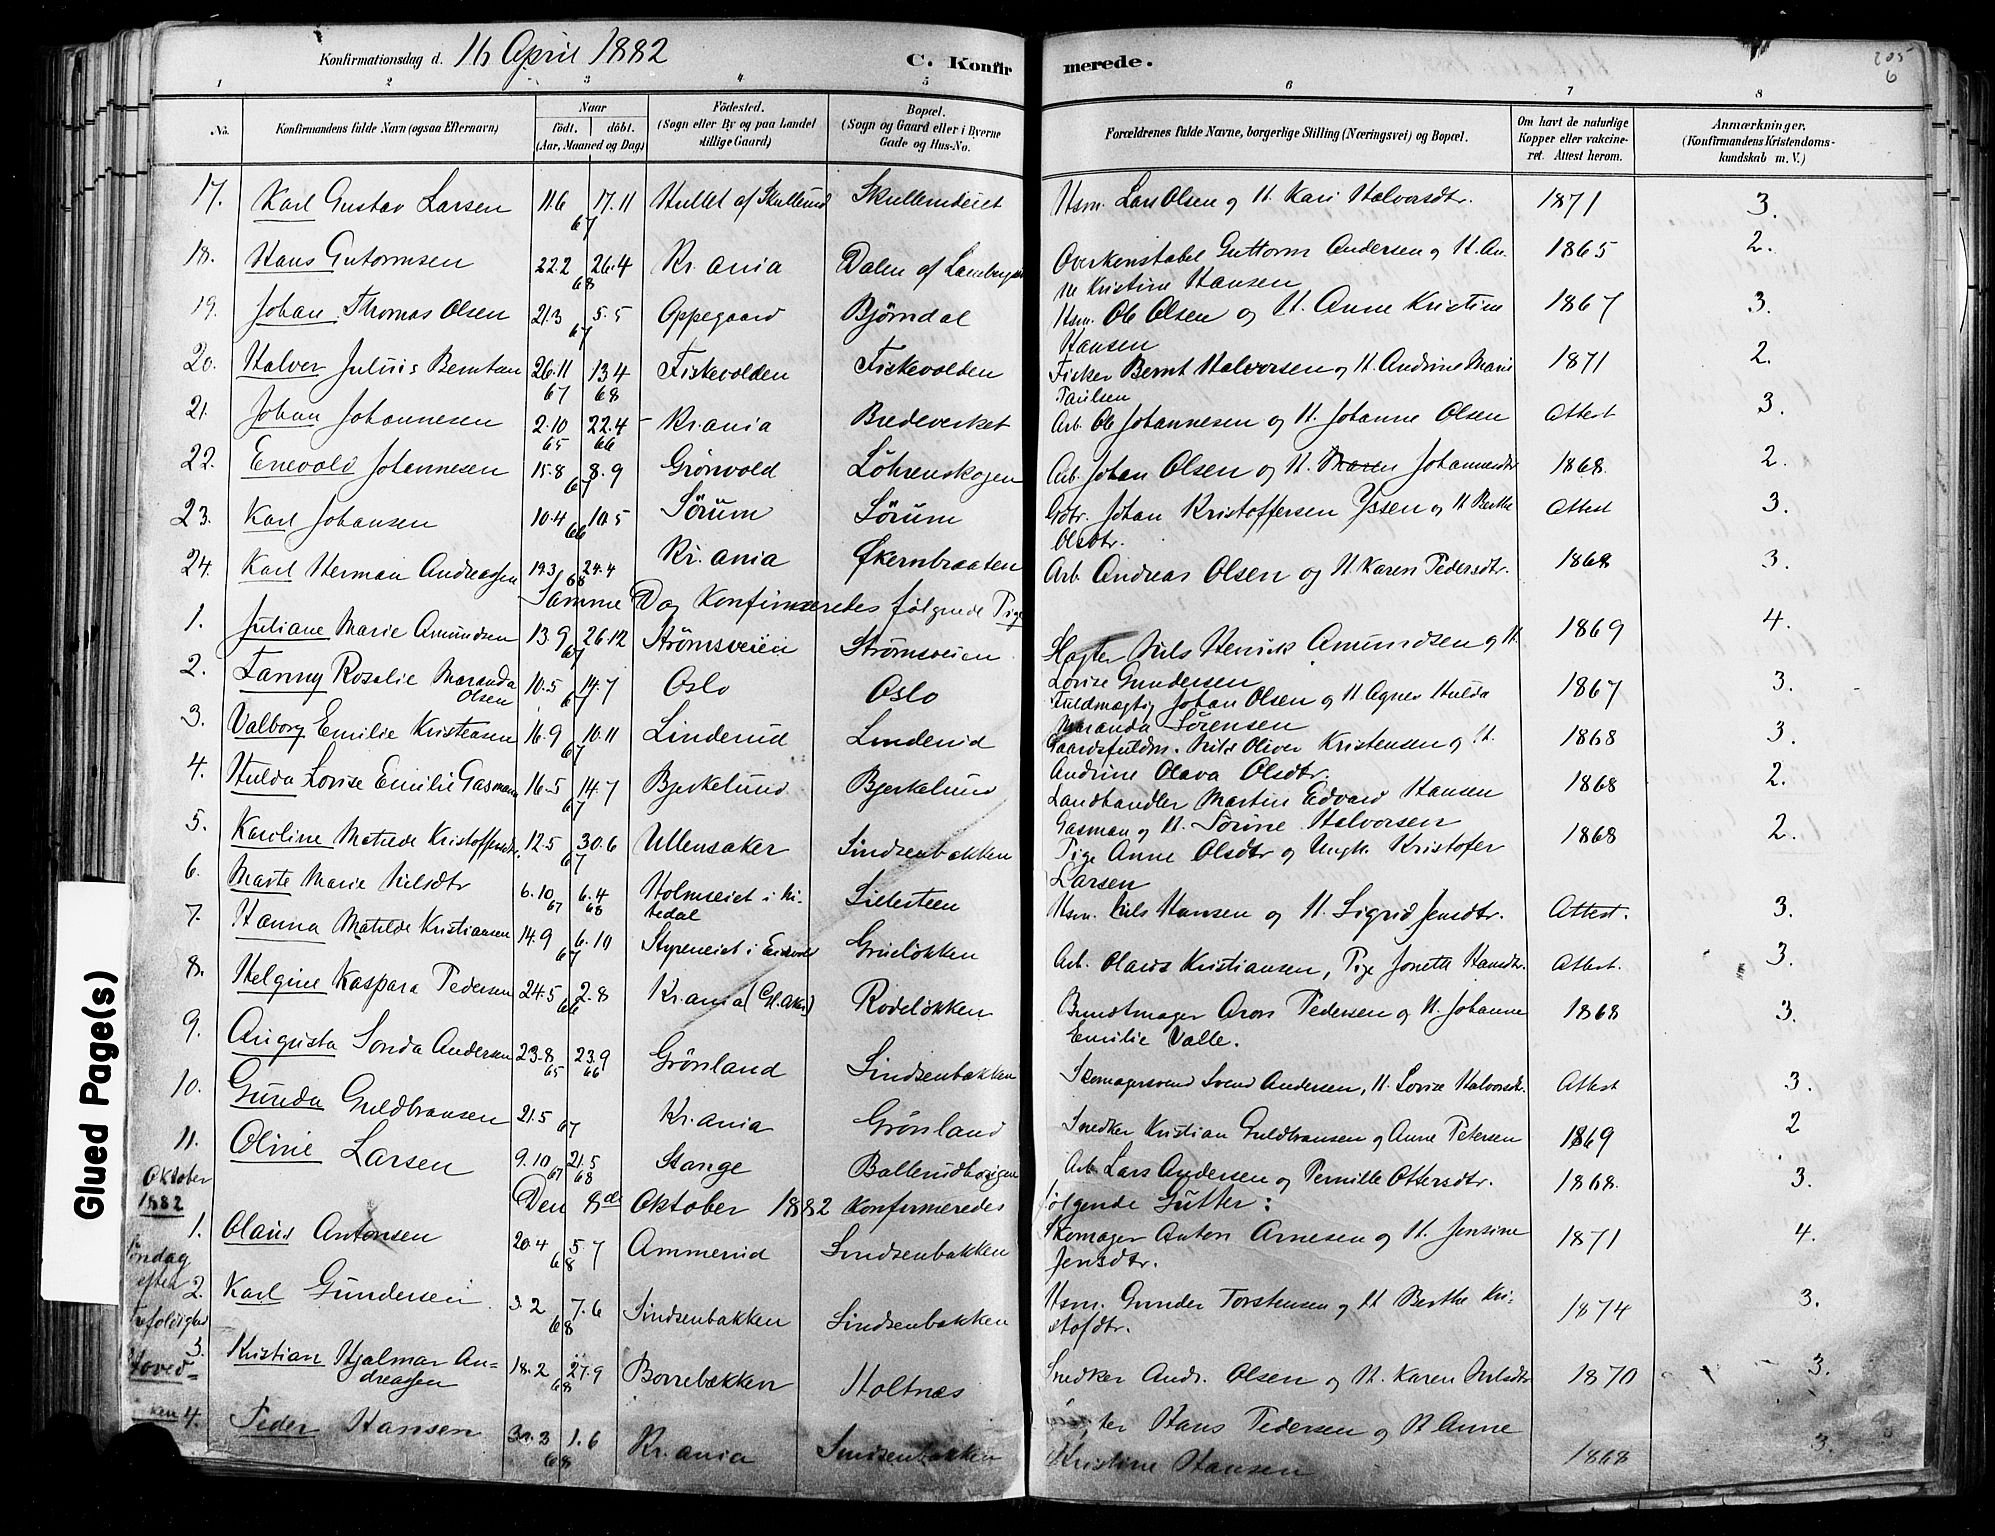 205
6
Konfirmationsdag d. 16 April 1882 C. Konfirmerede.
1 2 3 4 5 6 7 8
No. Konfirmandens fulde Navn (ogsaa Efternavn) Naar født. døbt. (Aar, Maaned og Dag) Fødested. (Sogn eller By og paa Landet tillige Gaard) Bopæl. (Sogn og Gaard eller i Byerne Gade og Hus-No. Forældrenes fulde Navne, borgerlige Stilling (Næringsvei) og Bopæl. Om havt de naturlige Kopper eller vakcineret. Attest herom. Anmærkninger. (Konfirmandens Kristendomskundskab m. V.)
17. Karl Gustav Larsen 11.6 17.11 67 Hullet af Skullerud Skullerudeiet Hsm. Lars Olsen og H. Kari Halvorsdtr. 1871 3.
18. Hans Gutormsen 22.2 26.4 68 Kr.ania Dalen af Overkonstabel Guttorm Andersen og H. An-
ne Kristine Hansen 1865 2.
19. Johan Thomas Olsen 21.3 5.5 67 Oppegaard Bjørndal Hsm. Ole Olsen og H. Anne Kristine
Hansen 1867 3.
20. Halver Julius Berntsen 26.11 67 13.4 68 Fiskevolden Fiskevolden Fisker Bernt Halvorsen og H. Andrine Marie
Paulsen 1871 2.
21. Johan Johannesen 2.10 65 22.4 66 Kr.ania Bredeverket Arb. Ole Johannesen og H. Johanne Olsen Attest 3.
22. Enevold Johannesen 15.8 8.9 67 Grönvold Löhrenskogen Arb. Johan Olsen og H. Maren Johannesdtr 1868 2.
23. Karl Johansen 10.4 10.5 66 Sörum Sörum Gdbr. Johan Kristoffersen Yssen og H. Berthe
Olsdtr. Attest 3.
24. Karl Herman Andreassen 19.3 24.4 68 Kr.ania Økernbraaten Arb. Andreas Olsen og H. Karen Pedersdtr. 1868 3.
Samme Dag Konfirmeredes følgende Pige
1. Juliane Marie Amundsen 13.9 26.12 67 Strömsveien Strömsveien Nils Henrik Amundsen og H.
Lovise Gundersen 1869 4.
2. Fanny Rosalie Maranda
Olsen 10.5 14.7 67 Oslo Oslo Fuldmægtig Johan Olsen og H. Agnes Hulda
Maranda Sørensen 1867 3.
3. Valborg Emilie Kristensen 16.9 10.11 67 Linderud Linderud Gaardsfuldm. Nils Oliver Kristensen og H.
Andrine Olava Olsdtr. 1868 3.
4. Hulda Lovise Emilie Gasmann 16.5 14.7 67 Bjerkelund Bjerkelund Landhandler Martin Edvard Hansen
Gasman og H. Sørine Halvorsen 1868 2.
5. Karoline Matilde Kristoffersdtr. 12.5 30.6 67 Ullensaker Sindsenbakken Pige Anne Olsdtr og Ungk. Kristofer
Larsen 1868 2.
6. Marte Marie Nilsdtr 6.10 67 6.4 68 Holmseiet i Ni-
tedal Sillesteen Hsm. Nils Hansen og H. Sigrid Jensdtr. Attest. 3.
7. Hanna Matilde Kristiansen 14.9 6.10 67 Styreneiet i Eidsvold Grüeløkken Arb. Olaves Kristiansen, Pige Jonette Hansdtr. Attest. 3.
8. Helgine Kaspara Pedersen 24.5 2.8 66 Kr.ania (Gl. Aker) Rodeløkken Bundtmager Aron Pedersen og H. Johanne
Emilie Valle. 1868 3.
9. Augusta Sonda Andersen 23.8 65 23.9 66 Grönland Sindsenbakken Skomagersvend Svend Andersen, H. Lovise Halvorsdtr. Attest 3.
10. Gunda Guldbransen 21.5 67 Kr.ania Grönland Snedker Kristian Guldbransen og Anne Petersen 1869 2
11. Oline Larsen 9.10 67 21.5 68 Stange Ballerudhaugen Arb. Lars Andersen og Pernille Ottersdtr. 1868. 3.
Oktober
1882
Den 8de Oktober 1882 Konfirmeredes følgende Gutter:
1. Olaus Antonsen 20.4 5.7 68 Ammerud Sindsenbakken Skomager Anton Arnesen og H. Jensine
Jensdtr. 1871 4.
Söndag
efter
2. Karl Gundersen 3.2 7.6 68 Sindsenbakken Sindsenbakken Hsm. Gunder Torstensen og H. Berthe Kri-
stofdtr. 1874 3.
Trefoldighed
3. Kristian Hjalmar An-
dreassen 18.2 27.9 68 Borrebækken Holtnæs Snedker Andr. Olsen og H. Karen Nilsdtr 1870 3.
Hoved-
ken 4. Peder Hansen 1.6 68 Kr.ania Sindsenbakken Hans Pedersen og H Anne
Kristine Hansen 1868 3.
Glued Page(s)